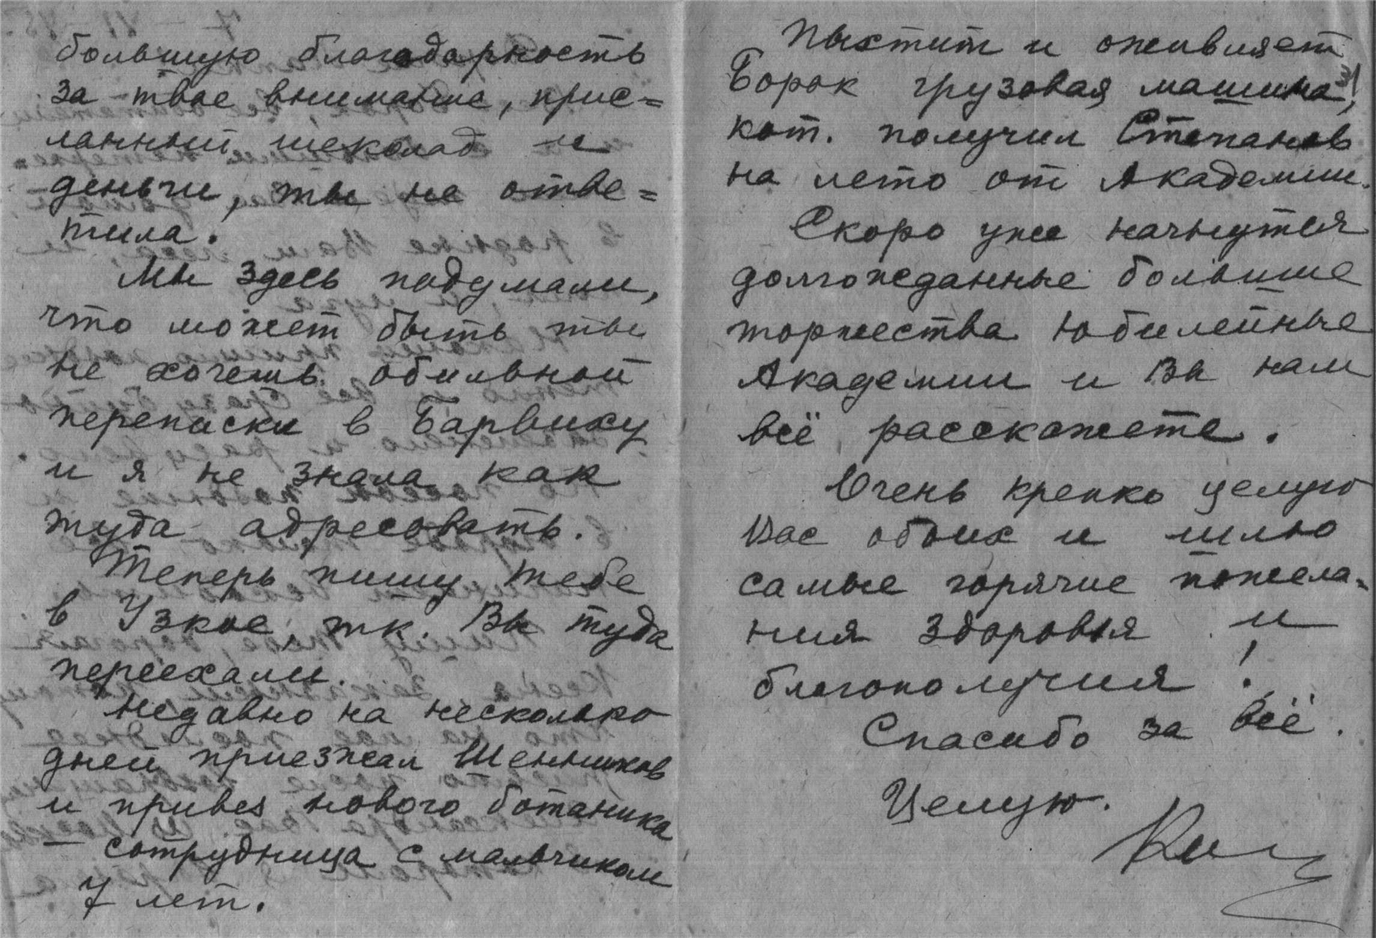 большую благодарность
за твое внимание, прис=
ланный шеколад и
деньги, ты не отве=
тила.
Мы здесь подумали,
что может быть ты
не хочешь обильной
переписки в Барвиху
и я не знала как
туда адресовать.
Теперь пишу тебе
в Узкое, т.к. Вы туда
переехали.
Недавно на несколько
дней приезжал Шенников
и привез нового ботаника
— сотрудница с мальчиком
7 лет.
Пыхтит и оживляет
Борок грузовая машина,
кот. получил Степанов
на лето от Академии.
Скоро уже начнутся
долгожданные большие
торжества Юбилейные
Академии и Вы нам
всё расскажете.
Очень крепко целую
Вас обоих и шлю
самые горячие пожела=
ния здоровья и
благополучия!
Спасибо за всё.
Целую.